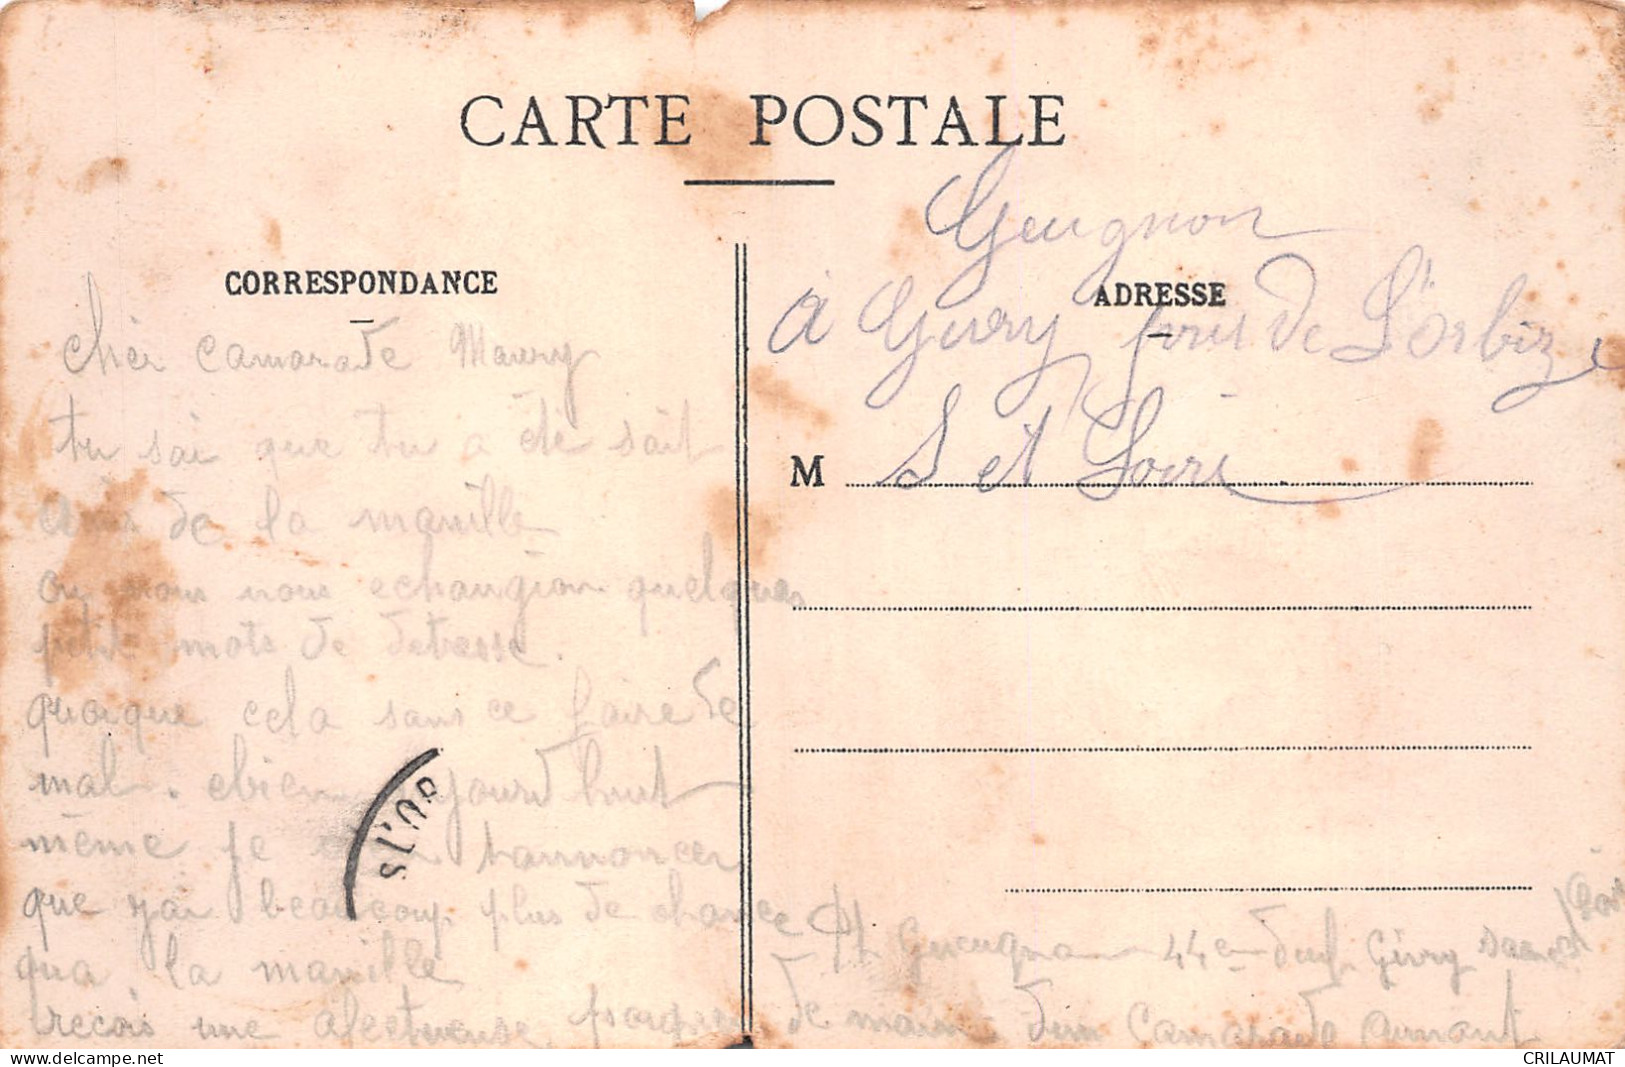 CARTE POSTALE
CORRESPONDANCE
cher camarade Maury
tu sai que tu a été sait
de la manille
nous echangion quelques
petit mots de detresse.
quoique cela sans ce faire de
mal. ebien aujourd huit
même je tannoncer
que j'ai beaucoup plus de chance
qua la manille
recois une afectueuse poignee de main dun Camarade
ADRESSE
Gueugnon
à Givry près de L'orbize
M S et Loire
Gueugnon 44e Givry
S L'OR
CRILAUMAT